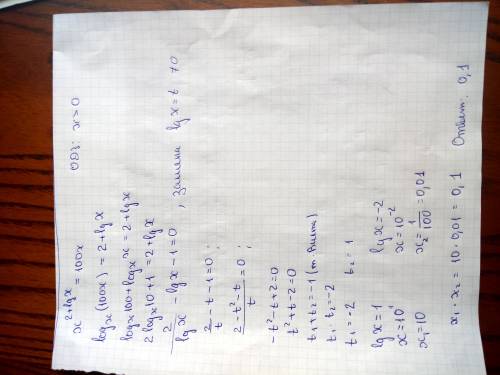 x^{2+lg x} = 100x   ОДЗ: x > 0
log_x (100x) = 2 + lg x
log_x 100 + log_x x = 2 + lg x
2 log_x 10 + 1 = 2 + lg x
2/lg x - lg x - 1 = 0, Замена lg x = t ≠ 0
2/t - t - 1 = 0;
(2 - t² - t)/t = 0;
-t² - t + 2 = 0
t² + t - 2 = 0
t₁ + t₂ = -1 (т. Виета)
t₁ · t₂ = -2
t₁ = -2   t₂ = 1
lg x = 1   lg x = -2
x = 10¹   x = 10⁻²
x₁ = 10   x₂ = 1/100 = 0,01
x₁ · x₂ = 10 · 0,01 = 0,1   Ответ: 0,1